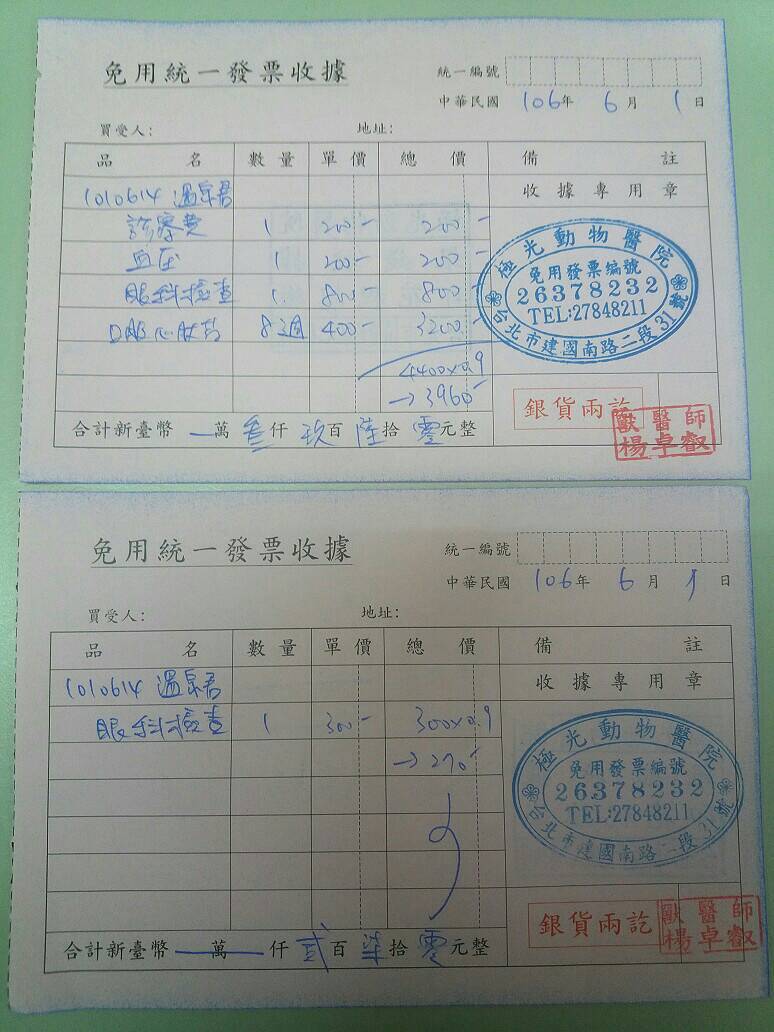 免用統一發票收據
統一編號
中華民國 106年 6月 1日
買受人: 地址:
品名 數量 單價 總價 備註
1010614 溫泉君 收據專用章
診療費 1 200- 200-
血压 1 200- 200-
眼科檢查 1. 800- 800-
口服心肚 8週 400- 3200-
4400x0.9
→3960-
極光動物醫院
免用發票編號
26378232
TEL:27848211
台北市建國南路二段31號
銀貨兩訖
獸醫師
楊卓叡
合計新臺幣 一萬 叁仟 玖百 陸拾 零元整
免用統一發票收據
統一編號
中華民國 106年 6月 1日
買受人: 地址:
品名 數量 單價 總價 備註
1010614 溫泉君 收據專用章
眼科檢查 1 300- 300x0.9
→270-
極光動物醫院
免用發票編號
26378232
TEL:27848211
台北市建國南路二段31號
銀貨兩訖
獸醫師
楊卓叡
合計新臺幣 萬 仟 貳百 柒拾 零元整